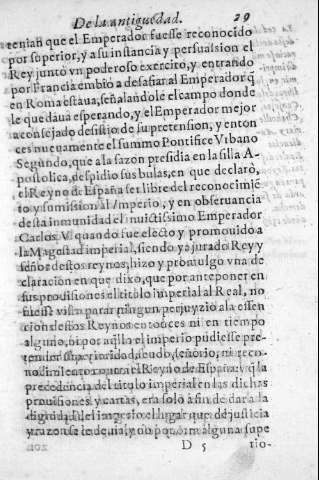 De la antiguedad. 29
tenian que el Emperador fuesse reconocido
por superior, y a su instancia y persuasion el
Rey juntò vn poderoso exercito, y entrando
por Francia embiò a desafiar al Emperador q̃
en Roma estaua, señalandole el campo donde
le que daua esperando, y el Emperador mejor
aconsejado desistio de su pretension, y enton
ces nueuamente el summo Pontifice Vrbano
Segundo, que a la sazon presidia en la silla A-
postolica, despidio sus bulas, en que declarò,
el Reyno de España ser libre del reconocimiẽ
to y sumission al Imperio, y en obseruancia
desta inmunidad el inuictissimo Emperador
Carlos V. quando fue electo y promouido a
la Magestad imperial, siendo ya jurado Rey y
señor destos reynos, hizo y promulgò vna de
claracion en que dixo, que por anteponer en
sus prouisiones el titulo imperial al Real, no
fuesse visto parar ningun perjuyzio a la essen
cion destos Reynos entonces ni en tiempo
alguno, ni por aq̃lla el imperio pudiesse pre-
tender superioridad, feudo, señorio, ni reco-
nocimiento contra el Reyno de España, y q̃ la
precedencia del titulo imperial en las dichas
prouisiones y cartas, era solo à fin de dar a la
dignidad del imperio el lugar que de justicia
y razon se le deuia, y no por otra alguna supe
D 5 rio-